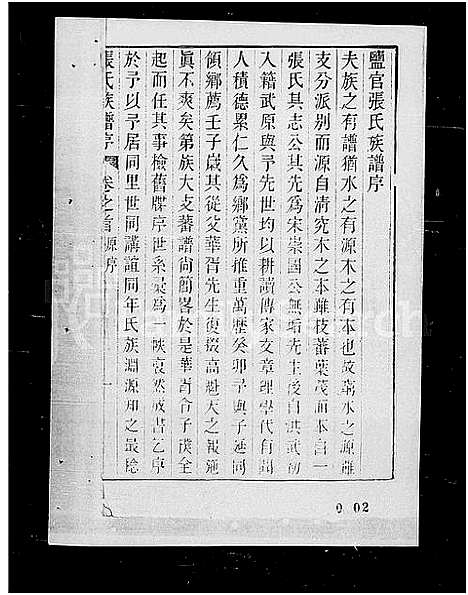 鹽官張氏族譜序
夫族之有譜猶水之有源木之有本也故窮水之源雖
支分派别而源自清究木之本雖枝蕃葉茂而本自一
張氏具志公其先為宋崇國公無垢先生後自洪武初
入籍武原與予先世均以耕讀傳家文章理學代有聞
人積德累仁久為鄉黨所推重萬歷癸卯予與子延同
領鄉薦壬子歲其從父華胥先生復掇高魁天之報施
眞不爽矣第族大支蕃譜尚簡畧於是華胥令子僕全
起而任其事檢舊牒序世系彙為一帙袠然成書乞序
於予以予居同里世同講誼同年氏族淵源知之最稔
張氏族譜序 卷之首 源序 一
0 02